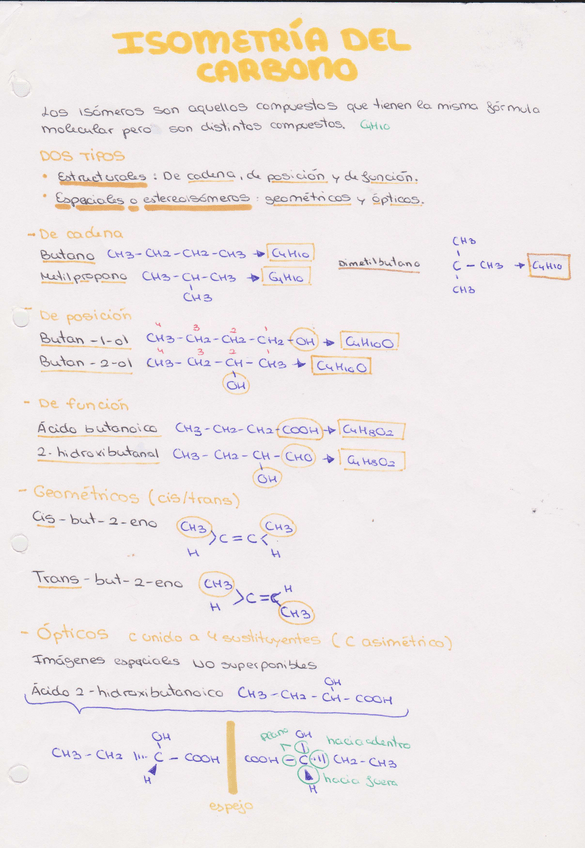 ISOMETRÍA DEL
CARBONO
Los isómeros son aquellos compuestos que tienen la misma fórmula
molecular pero son distintos compuestos. C4H10
DOS TIPOS
• Estructurales: De cadena, de posición y de función.
• Espaciales o estereoisómeros: geométricos y ópticos.
→ De cadena
Butano CH3-CH2-CH2-CH3 → C4H10
Metilpropano CH3-CH-CH3 → C4H10
CH3
Dimetilbutano
CH3
C - CH3 → C4H10
CH3
- De posición
4 3 2 1
Butan-1-ol CH3-CH2-CH2-CH2-OH → C4H10O
4 3 2 1
Butan-2-ol CH3-CH2-CH-CH3 → C4H10O
OH
- De función
Ácido butanoico CH3-CH2-CH2-COOH → C4H8O2
2-hidroxibutanal CH3-CH2-CH-CHO → C4H8O2
OH
- Geométricos (cis/trans)
Cis-but-2-eno CH3 CH3
C=C
H H
Trans-but-2-eno CH3 H
C=C
H CH3
- Ópticos C unido a 4 sustituyentes (C asimétrico)
Imágenes espaciales NO superponibles
OH
Ácido 2-hidroxibutanoico CH3-CH2-CH-COOH
OH
CH3-CH2 C-COOH
H
plano OH hacia adentro
COOH-C CH2-CH3
hacia fuera
H
espejo